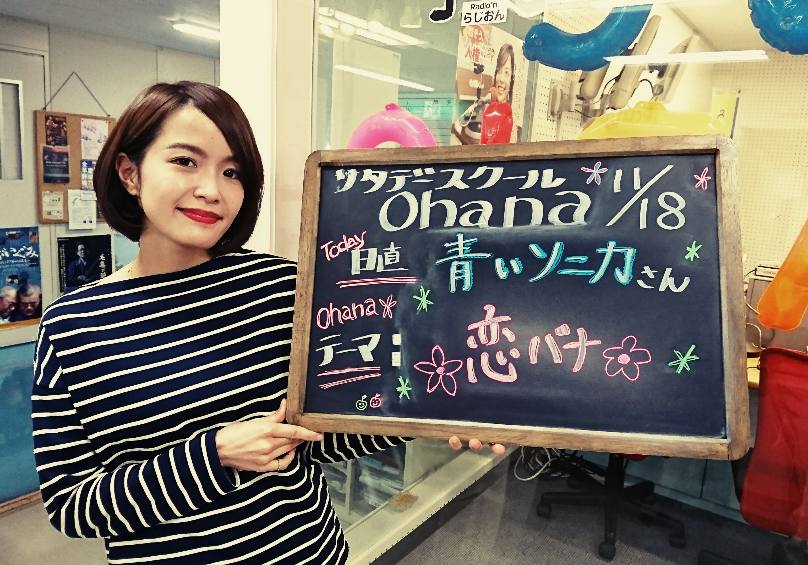 Radio'n
らじおん
サタデースクール
Ohana 11/18
Today
日直
青いソニカさん
Ohana
テーマ:
恋バナ